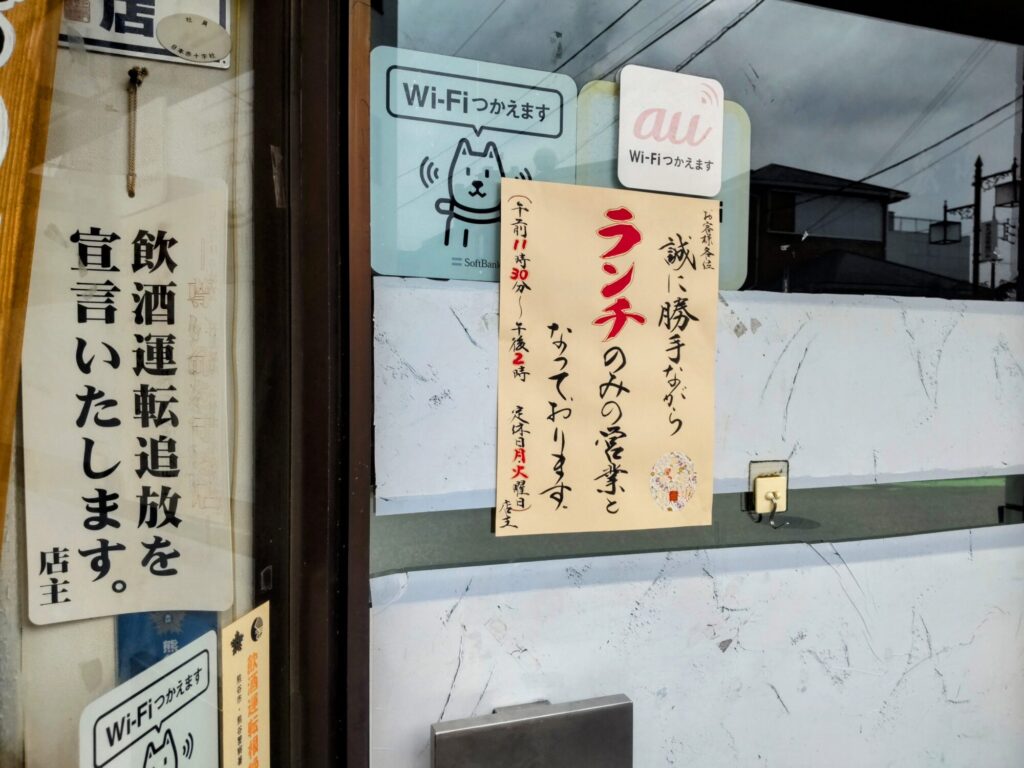 店
社員
日本赤十字社
飲酒運転追放を
宣言いたします。
店主
Wi-Fiつかえます
SoftBank
au
Wi-Fiつかえます
お客様各位
誠に勝手ながら
ランチのみの営業と
なっております。
(午前11時30分〜午後2時 定休日月火曜日)
店主
Wi-Fiつかえます
熊
飲酒運転根
熊谷市・熊谷警察署